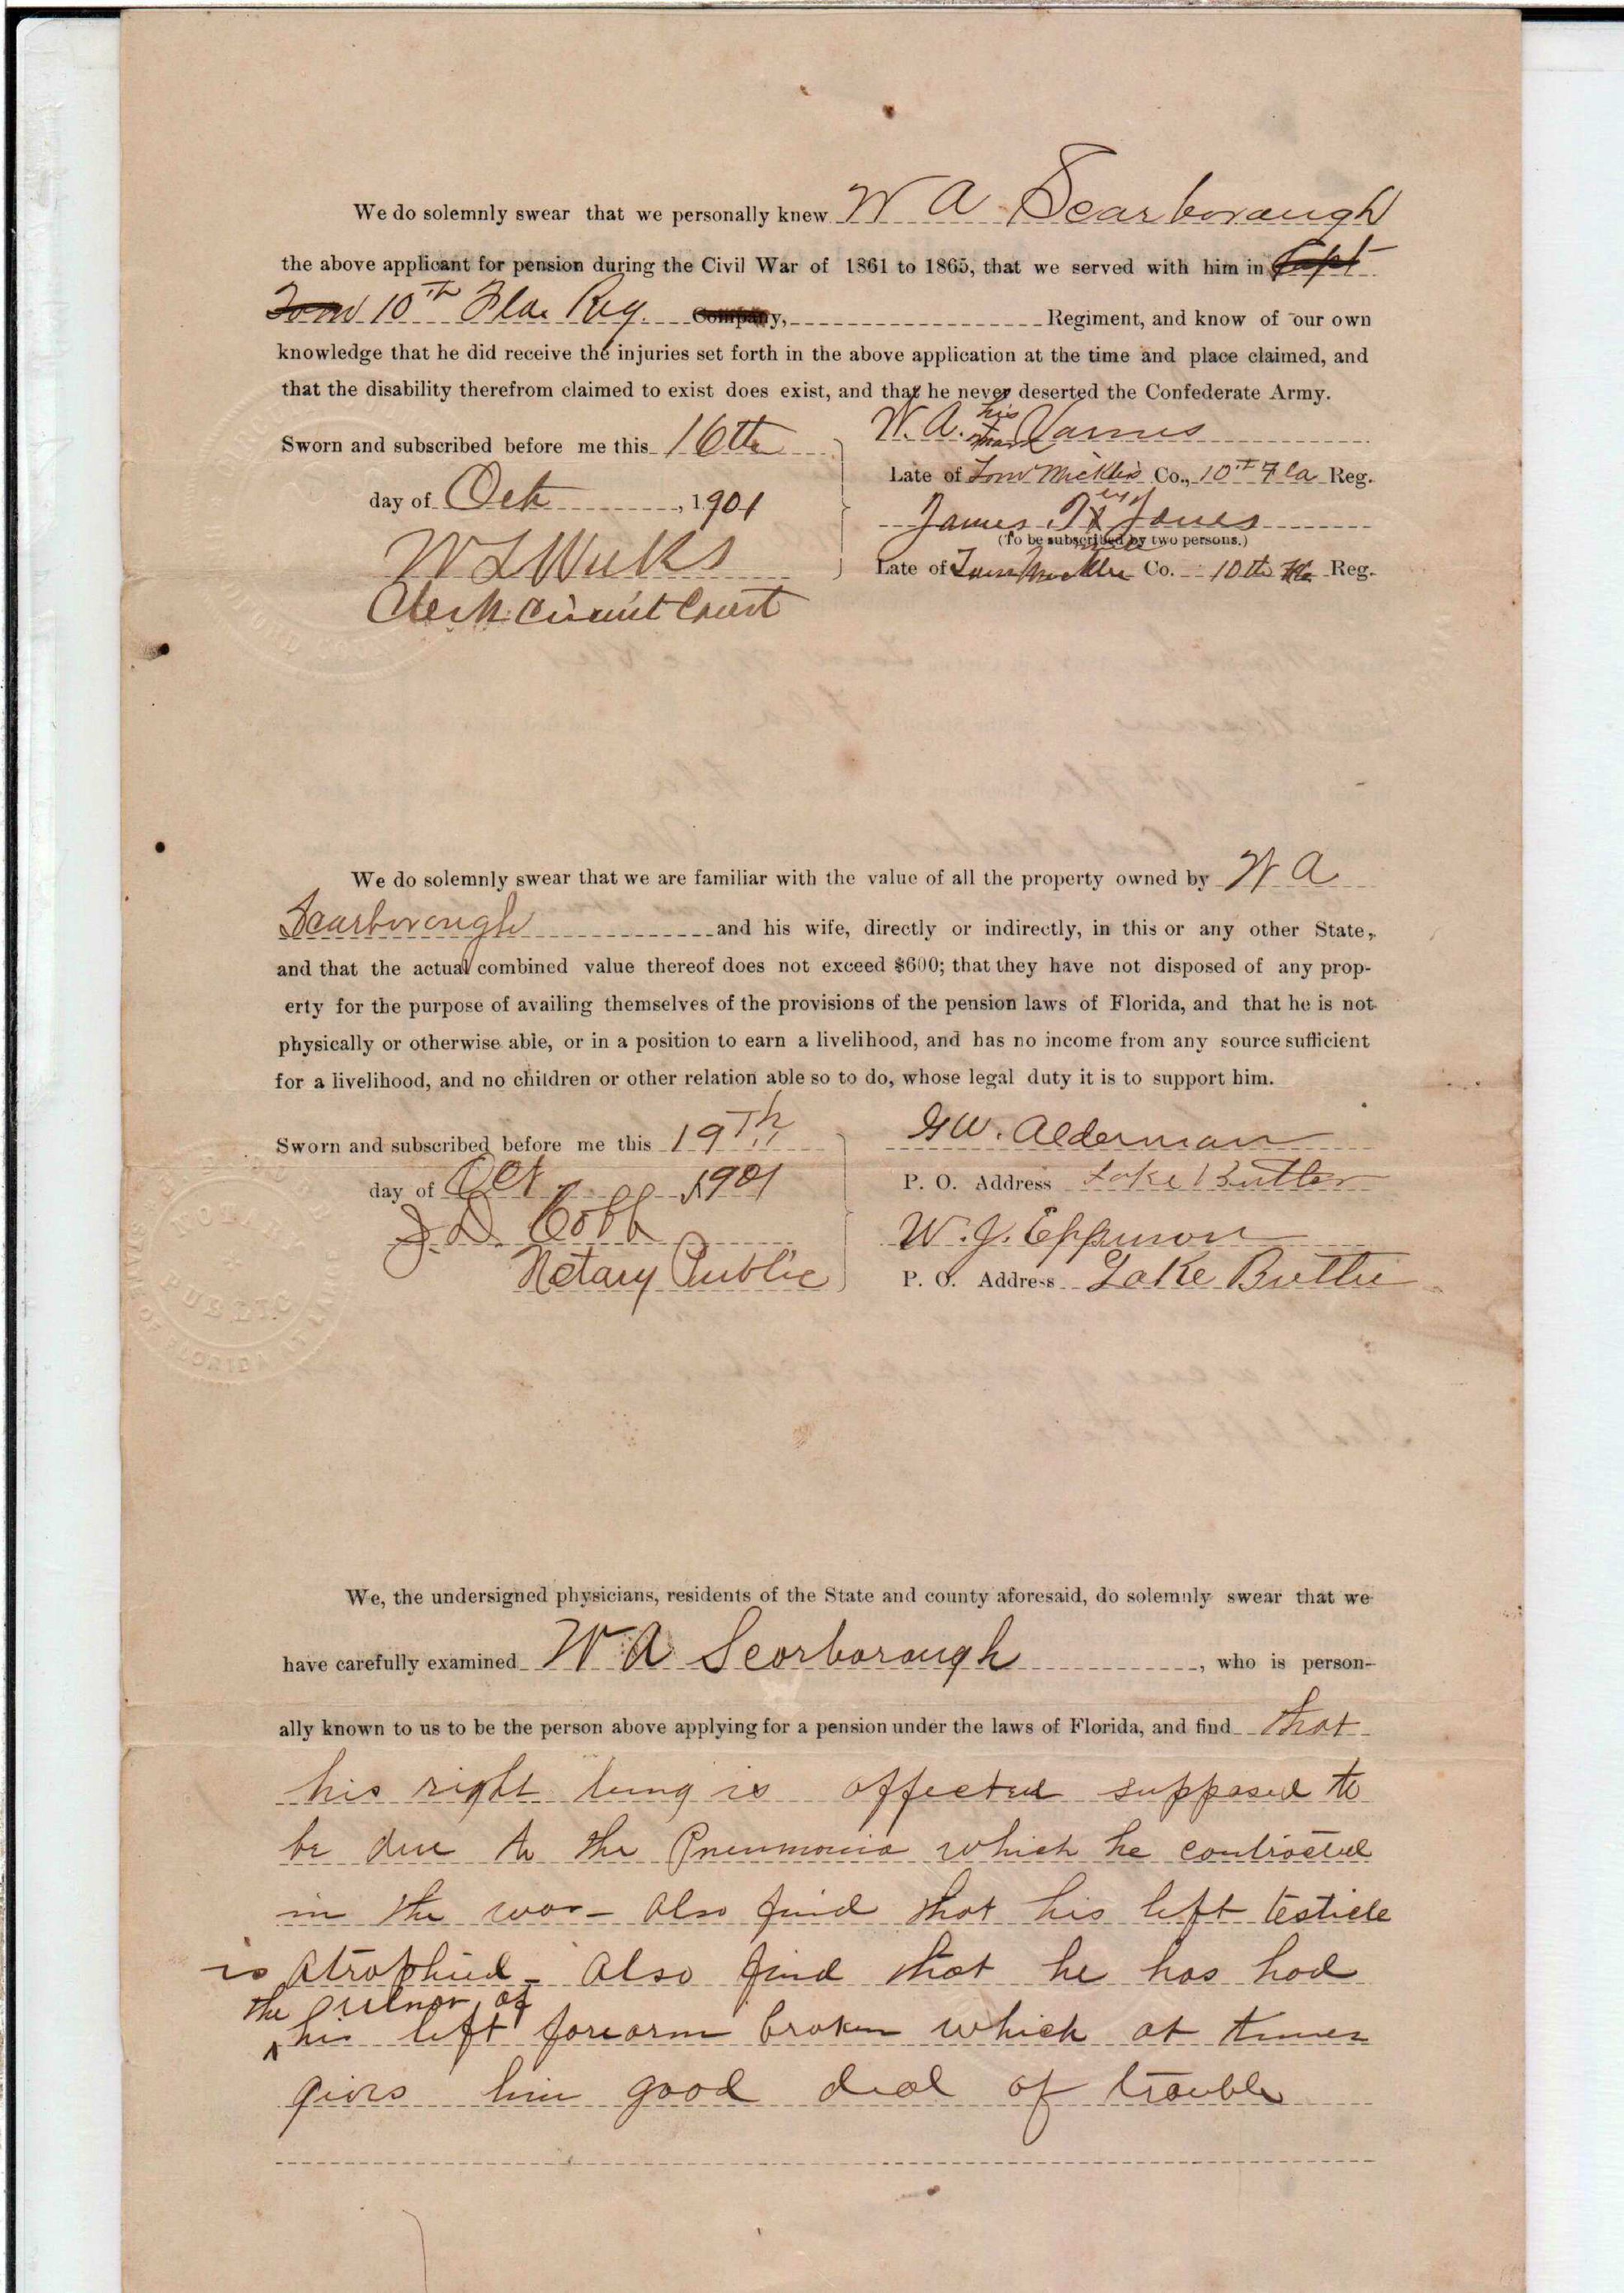 We do solemnly swear that we personally knew W A Scarborough
the above applicant for pension during the Civil War of 1861 to 1865, that we served with him in Capt
Tom 10th Fla. Reg. Company, Regiment, and know of our own
knowledge that he did receive the injuries set forth in the above application at the time and place claimed, and
that the disability therefrom claimed to exist does exist, and that he never deserted the Confederate Army.
Sworn and subscribed before me this 16th
day of Oct, 1901
W L Weeks
Clerk Circuit Court
W. A. his mark
Late of Tom Mickler Co., 10th Fla Reg.
James Jones
(To be subscribed by two persons.)
Late of Tom Mickler Co. 10th Fla Reg.
We do solemnly swear that we are familiar with the value of all the property owned by W A
Scarborough and his wife, directly or indirectly, in this or any other State,
and that the actual combined value thereof does not exceed $600; that they have not disposed of any prop-
erty for the purpose of availing themselves of the provisions of the pension laws of Florida, and that he is not
physically or otherwise able, or in a position to earn a livelihood, and has no income from any source sufficient
for a livelihood, and no children or other relation able so to do, whose legal duty it is to support him.
Sworn and subscribed before me this 19Th
day of Oct 1901
J. D. Cobb
Notary Public
G W. Alderman
P. O. Address Lake Butler
W. J. Epperson
P. O. Address Lake Butler
NOTARY
PUBLIC
We, the undersigned physicians, residents of the State and county aforesaid, do solemnly swear that we
have carefully examined W A Scorborough, who is person-
ally known to us to be the person above applying for a pension under the laws of Florida, and find that
his right lung is affected supposed to
be due to the Pneumonia which he contracted
in the war - also find that his left testicle
is atrophied - also find that he has had
the of
his left forearm broken which at times
gives him good deal of trouble